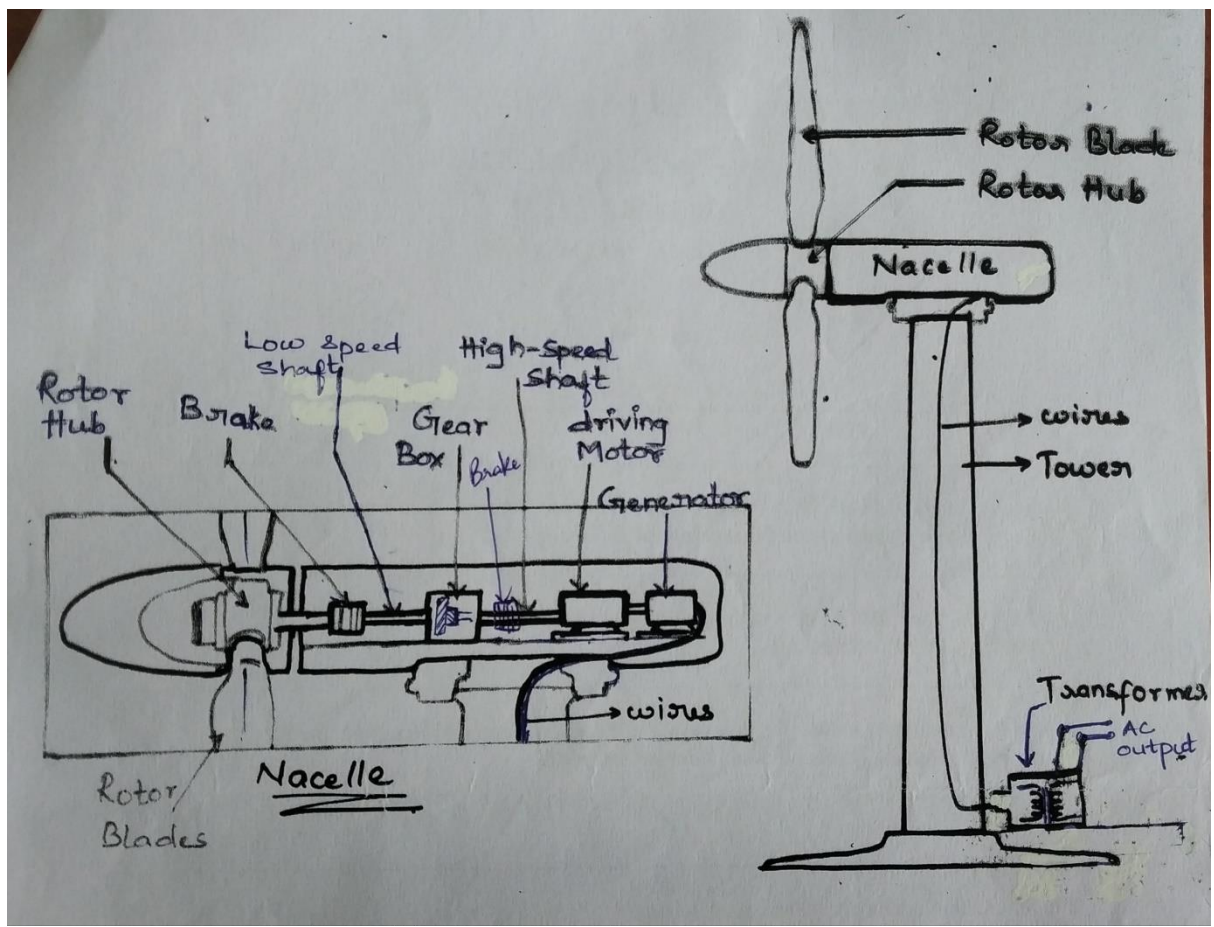 Rotor Blade
Rotor Hub
Nacelle
wires
Tower
Transformer
AC
output
Low speed
shaft
High-Speed
Shaft
Rotor
Hub
Brake
Gear
Box
Brake
driving
Motor
Generator
wires
Rotor
Blades
Nacelle